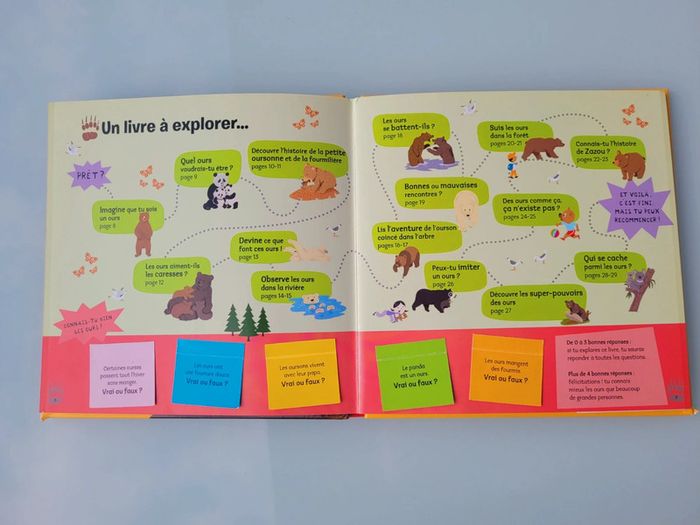 Un livre à explorer...
PRÊT ?
Quel ours
voudrais-tu être ?
page 9
Découvre l'histoire de la petite
oursonne et de la fourmilière
pages 10-11
Imagine que tu sois
un ours
page 8
Devine ce que
font ces ours !
page 13
Les ours aiment-ils
les caresses ?
page 12
Observe les ours
dans la rivière
pages 14-15
Les ours
se battent-ils ?
page 18
Suis les ours
dans la forêt
pages 20-21
Connais-tu l'histoire
de Zazou ?
pages 22-23
Bonnes ou mauvaises
rencontres ?
page 19
Des ours comme ça,
ça n'existe pas ?
pages 24-25
ET VOILÀ,
C'EST FINI,
MAIS TU PEUX
RECOMMENCER !
Lis l'aventure de l'ourson
coincé dans l'arbre
pages 16-17
Peux-tu imiter
un ours ?
page 26
Qui se cache
parmi les ours ?
pages 28-29
Découvre les super-pouvoirs
des ours
page 27
CONNAIS-TU BIEN
LES OURS ?
Certaines ourses
passent tout l'hiver
sans manger.
Vrai ou faux ?
Les ours ont
une fourrure douce.
Vrai ou faux ?
Les oursons vivent
avec leur papa.
Vrai ou faux ?
Le panda
est un ours.
Vrai ou faux ?
Les ours mangent
des fourmis.
Vrai ou faux ?
De 0 à 3 bonnes réponses :
si tu explores ce livre, tu sauras
répondre à toutes les questions.
Plus de 4 bonnes réponses :
félicitations ! tu connais
mieux les ours que beaucoup
de grandes personnes.